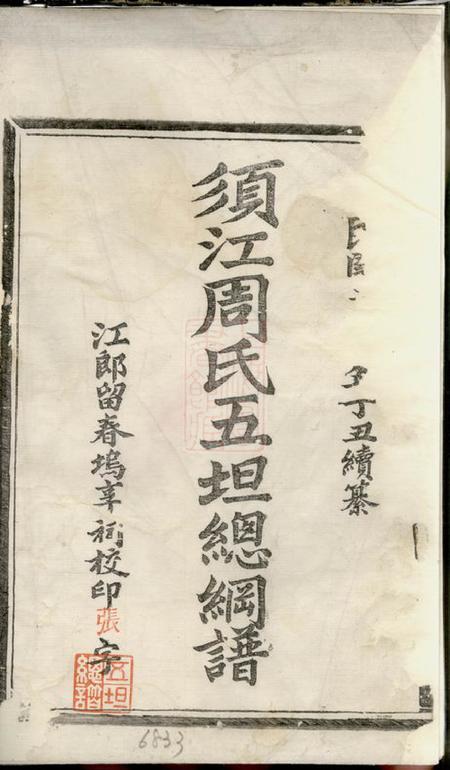 丁丑續纂
須江周氏五坦總綱譜
江郎留春塢享祠校印
張
字
五坦
總譜
6833